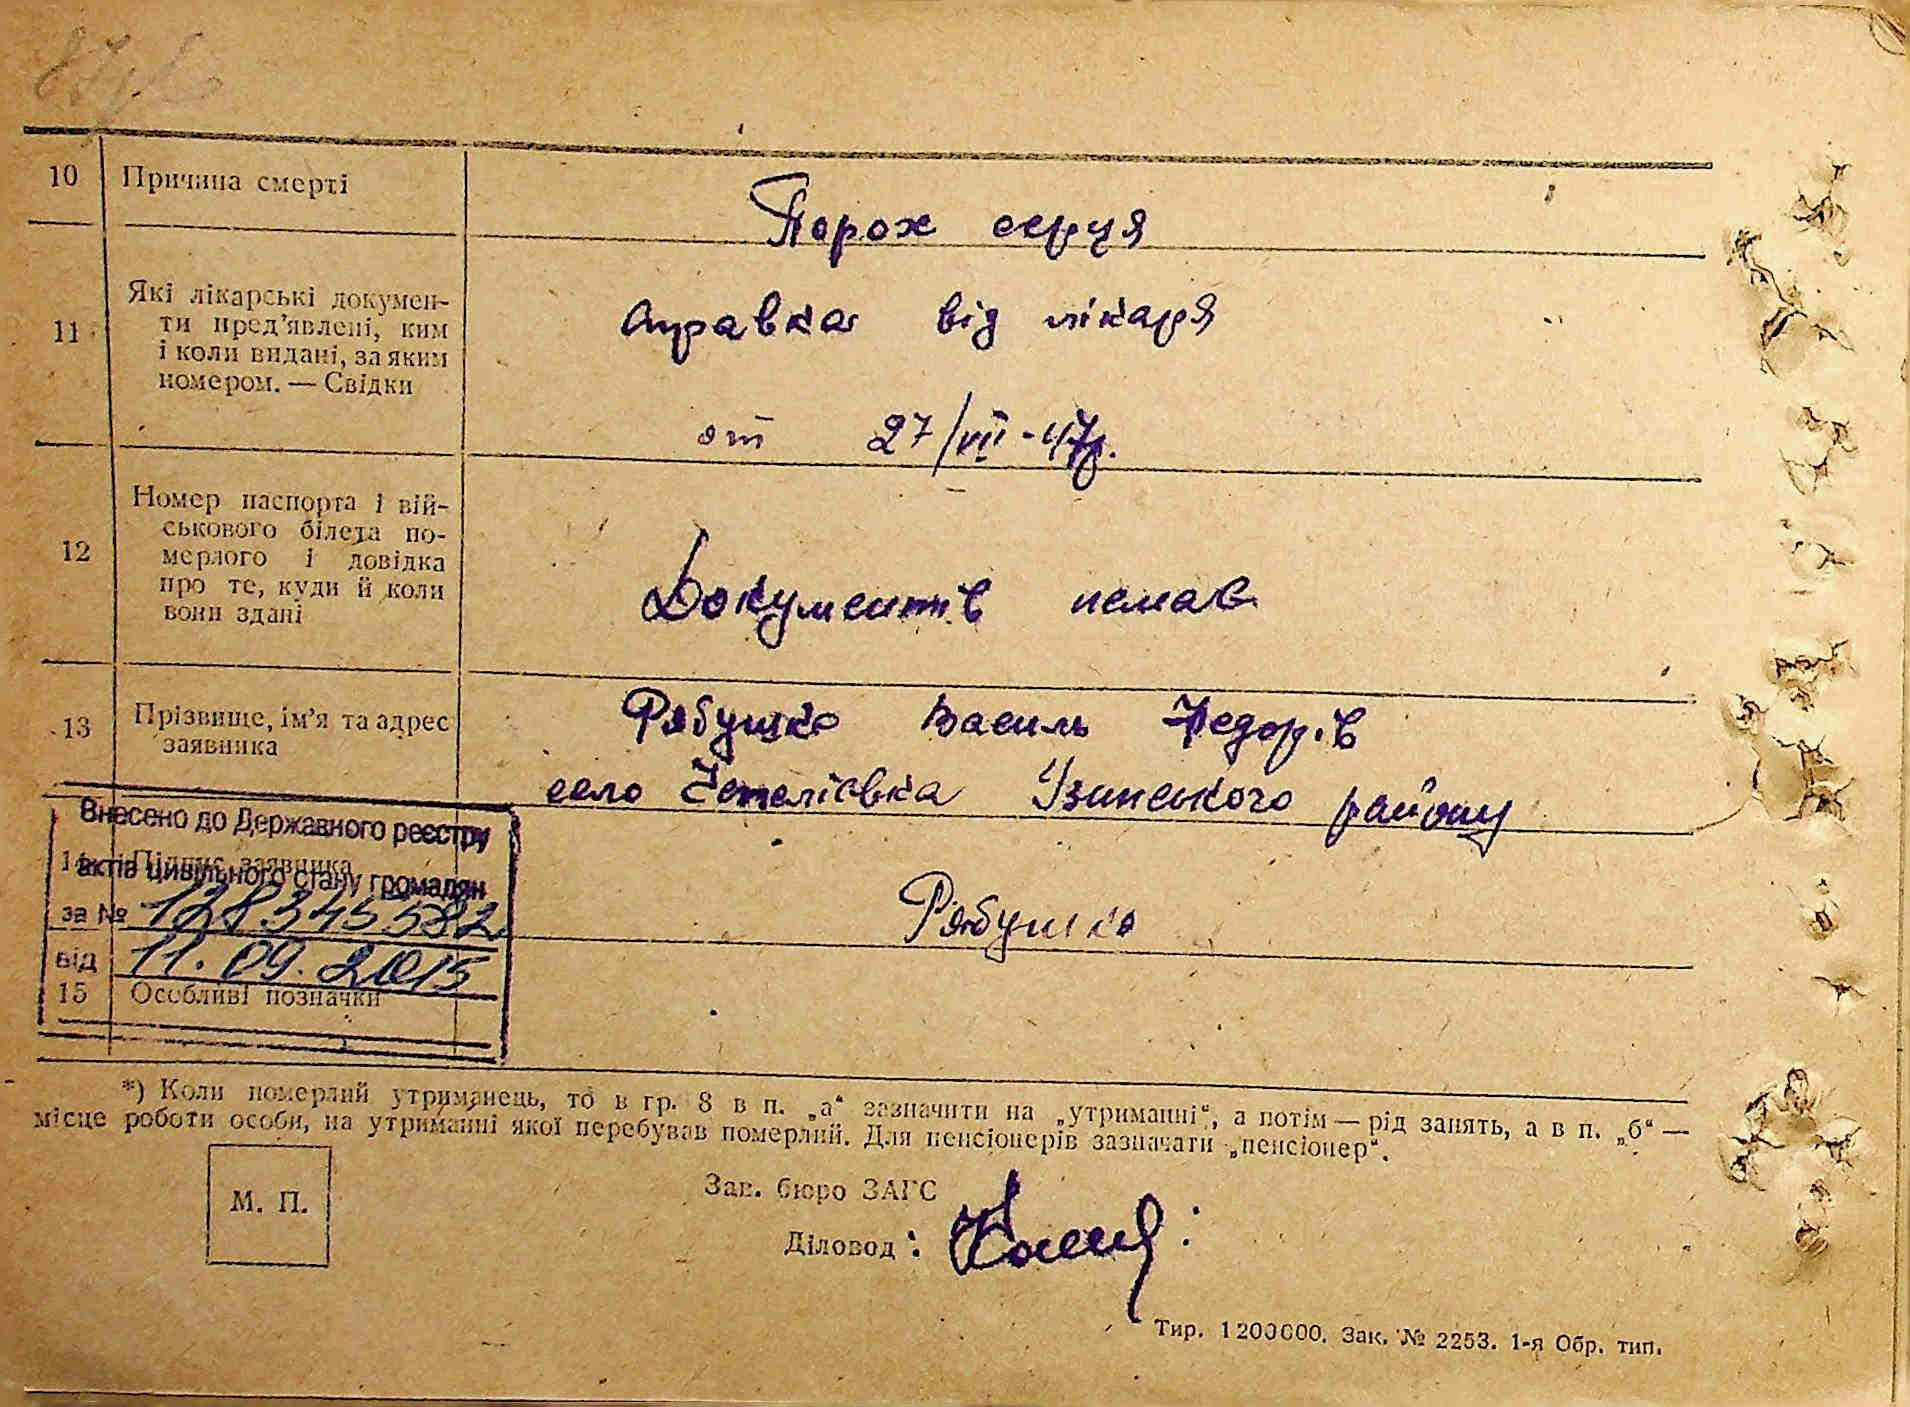 10 Причина смерті
Порох серця
11 Які лікарські докумен-
ти пред’явлені, ким
і коли видані, за яким
номером. — Свідки
справка від лікаря
от 27/VII-47р.
12 Номер паспорта і вій-
ськового білета по-
мерлого і довідка
про те, куди й коли
вони здані
Документів немає
13 Прізвище, ім’я та адрес
заявника
Рябушко Василь Федорів
село Узинського району
Внесено до Державного реєстру
14 Підпис заявника
актів цивільного стану громадян
за № 128345582
від 11.09.2015
Рябушко
15 Особливі позначки
*) Коли померлий утриманець, то в гр. 8 в п. „а“ зазначити на „утриманні“, а потім — рід занять, а в п. „б“ —
місце роботи особи, на утриманні якої перебував померлий. Для пенсіонерів зазначати „пенсіонер“.
М. П.
Зав. бюро ЗАГС
Діловод :
Тир. 1200000. Зак. № 2253. 1-я Обр. тип.